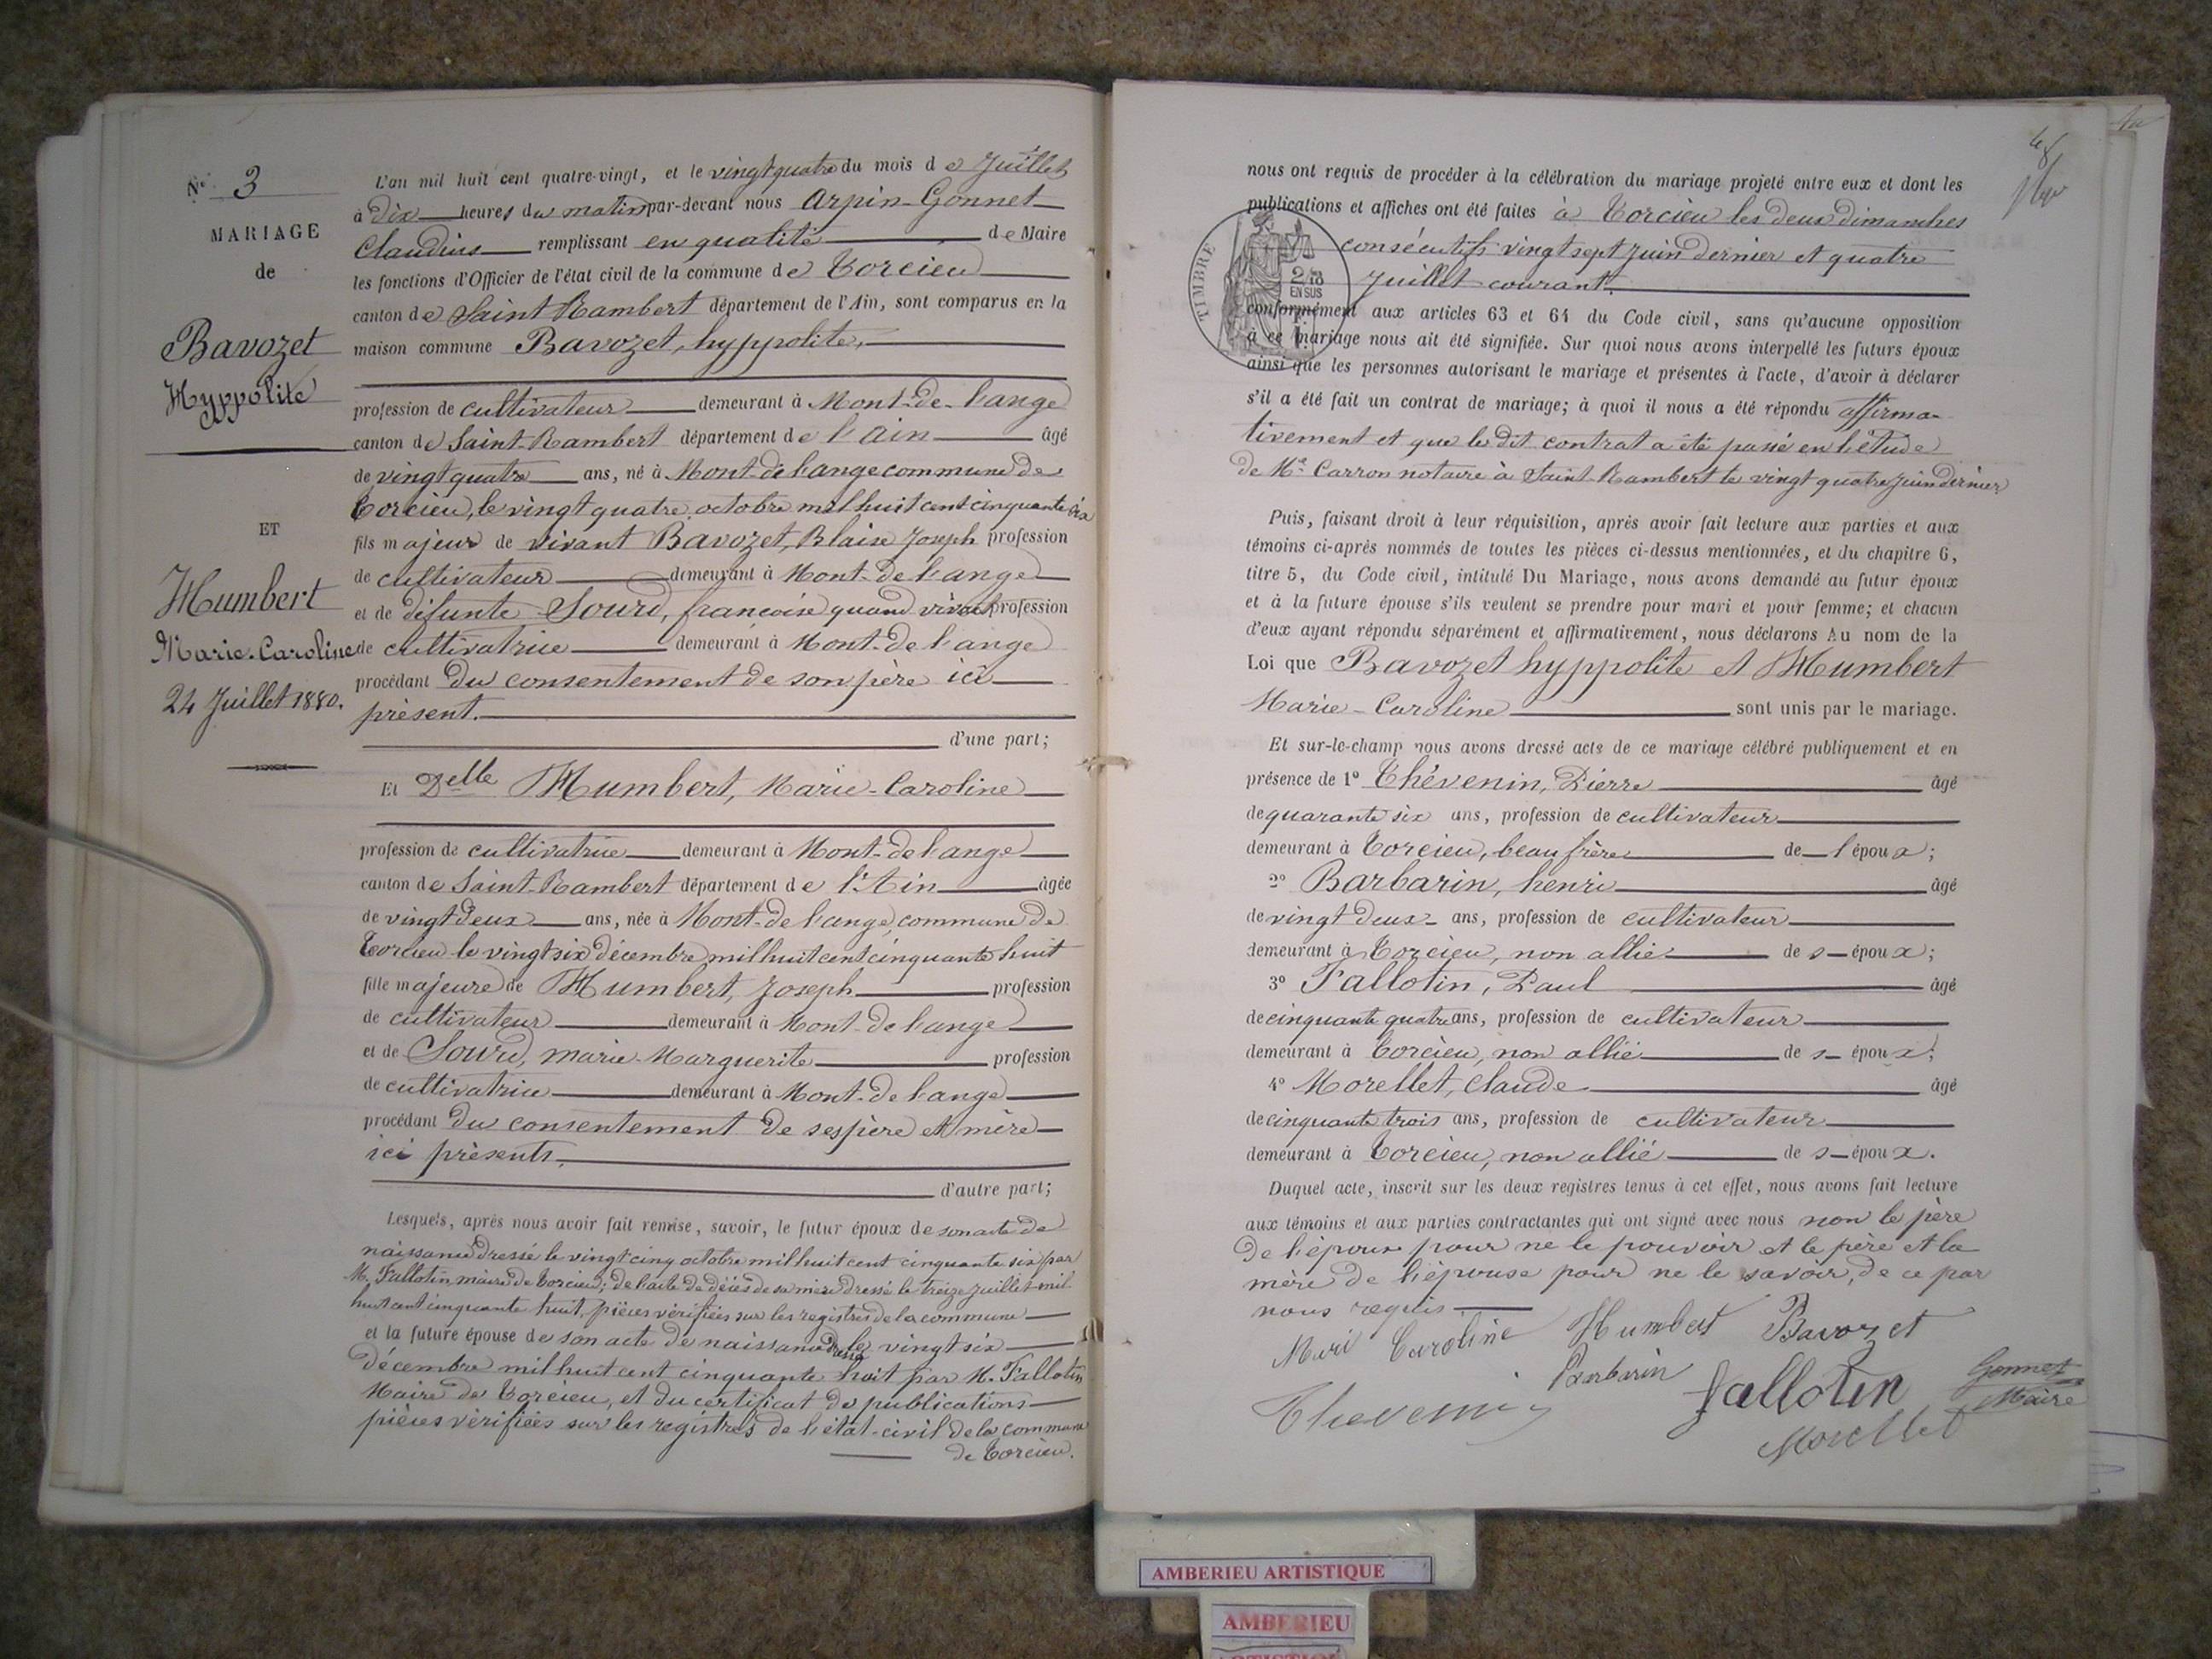 N° 3
MARIAGE
de
Bavozet
Hyppolite
ET
Humbert
Marie-Caroline
24 Juillet 1880.
L'an mil huit cent quatre-vingt, et le vingt quatre du mois de Juillet
à dix heures du matin par-devant nous Arpin-Gonnet
Claudius remplissant en qualité de Maire
les fonctions d'Officier de l'état civil de la commune de Torcieu
canton de Saint Rambert département de l'Ain, sont comparus en la
maison commune Bavozet, hyppolite,
profession de cultivateur demeurant à Mont-de-lange
canton de Saint-Rambert département de l'Ain âgé
de vingt quatre ans, né à Mont-de lange commune de
Torcieu, le vingt quatre octobre mil huit cent cinquante six
fils majeur de vivant Bavozet, Blaise Joseph profession
de cultivateur demeurant à Mont-de lange
et de défunte Sourd, françoise quand vivait profession
de cultivatrice demeurant à Mont-de lange
procédant du consentement de son père ici
présent.
d'une part;
Et Delle Humbert, Marie-Caroline
profession de cultivatrice demeurant à Mont-de lange
canton de Saint-Rambert département de l'Ain âgée
de vingt deux ans, née à Mont-de lange, commune de
Torcieu le vingt six décembre mil huit cent cinquante huit
fille majeure de Humbert, Joseph profession
de cultivateur demeurant à Mont-de lange
et de Sourd, marie-Marguerite profession
de cultivatrice demeurant à Mont-de lange
procédant du consentement de ses père et mère
ici présents.
d'autre part;
Lesquels, après nous avoir fait remise, savoir, le futur époux de son acte de
naissance dressé le vingt cinq octobre mil huit cent cinquante six par
M. Fallotin maire de Torcieu; de l'acte de décès de sa mère dressé le treize juillet mil
huit cent cinquante huit, pièces vérifiées sur les registres de la commune
et la future épouse de son acte de naissance dressé le vingt six
décembre mil huit cent cinquante huit par M. Fallotin
Maire de Torcieu, et du certificat de publications
pièces vérifiées sur les registres de l'état-civil de la commune
de Torcieu.
nous ont requis de procéder à la célébration du mariage projeté entre eux et dont les
publications et affiches ont été faites à Torcieu les deux dimanches
consécutifs vingt sept juin dernier et quatre
Juillet courant.
TIMBRE
2/10
EN SUS
conformément aux articles 63 et 64 du Code civil, sans qu'aucune opposition
à ce mariage nous ait été signifiée. Sur quoi nous avons interpellé les futurs époux
ainsi que les personnes autorisant le mariage et présentes à l'acte, d'avoir à déclarer
s'il a été fait un contrat de mariage; à quoi il nous a été répondu affirma-
tivement et que le dit contrat a été passé en l'étude
de Me Carron notaire à Saint-Rambert le vingt quatre juin dernier
Puis, faisant droit à leur réquisition, après avoir fait lecture aux parties et aux
témoins ci-après nommés de toutes les pièces ci-dessus mentionnées, et du chapitre 6,
titre 5, du Code civil, intitulé Du Mariage, nous avons demandé au futur époux
et à la future épouse s'ils veulent se prendre pour mari et pour femme; et chacun
d'eux ayant répondu séparément et affirmativement, nous déclarons Au nom de la
Loi que Bavozet hyppolite et Humbert
Marie-Caroline sont unis par le mariage.
Et sur-le-champ nous avons dressé acte de ce mariage célébré publiquement et en
présence de 1° Thévenin, Pierre âgé
de quarante six ans, profession de cultivateur
demeurant à Torcieu, beau frère de l'époux;
2° Barbarin, henri âgé
de vingt deux ans, profession de cultivateur
demeurant à Torcieu, non allié de s époux;
3° Fallotin, Paul âgé
de cinquante quatre ans, profession de cultivateur
demeurant à Torcieu, non allié de s époux;
4° Morellet, Claude âgé
de cinquante trois ans, profession de cultivateur
demeurant à Torcieu, non allié de s époux.
Duquel acte, inscrit sur les deux registres tenus à cet effet, nous avons fait lecture
aux témoins et aux parties contractantes qui ont signé avec nous non le père
de l'époux pour ne le pouvoir et le père et la
mère de l'épouse pour ne le savoir, de ce par
nous requis
Mari Caroline Humbert Bavozet
Thevenin Barbarin fallotin Gonnet
Maire
Morellet
AMBERIEU ARTISTIQUE
AMBERIEU
ARTISTIQUE